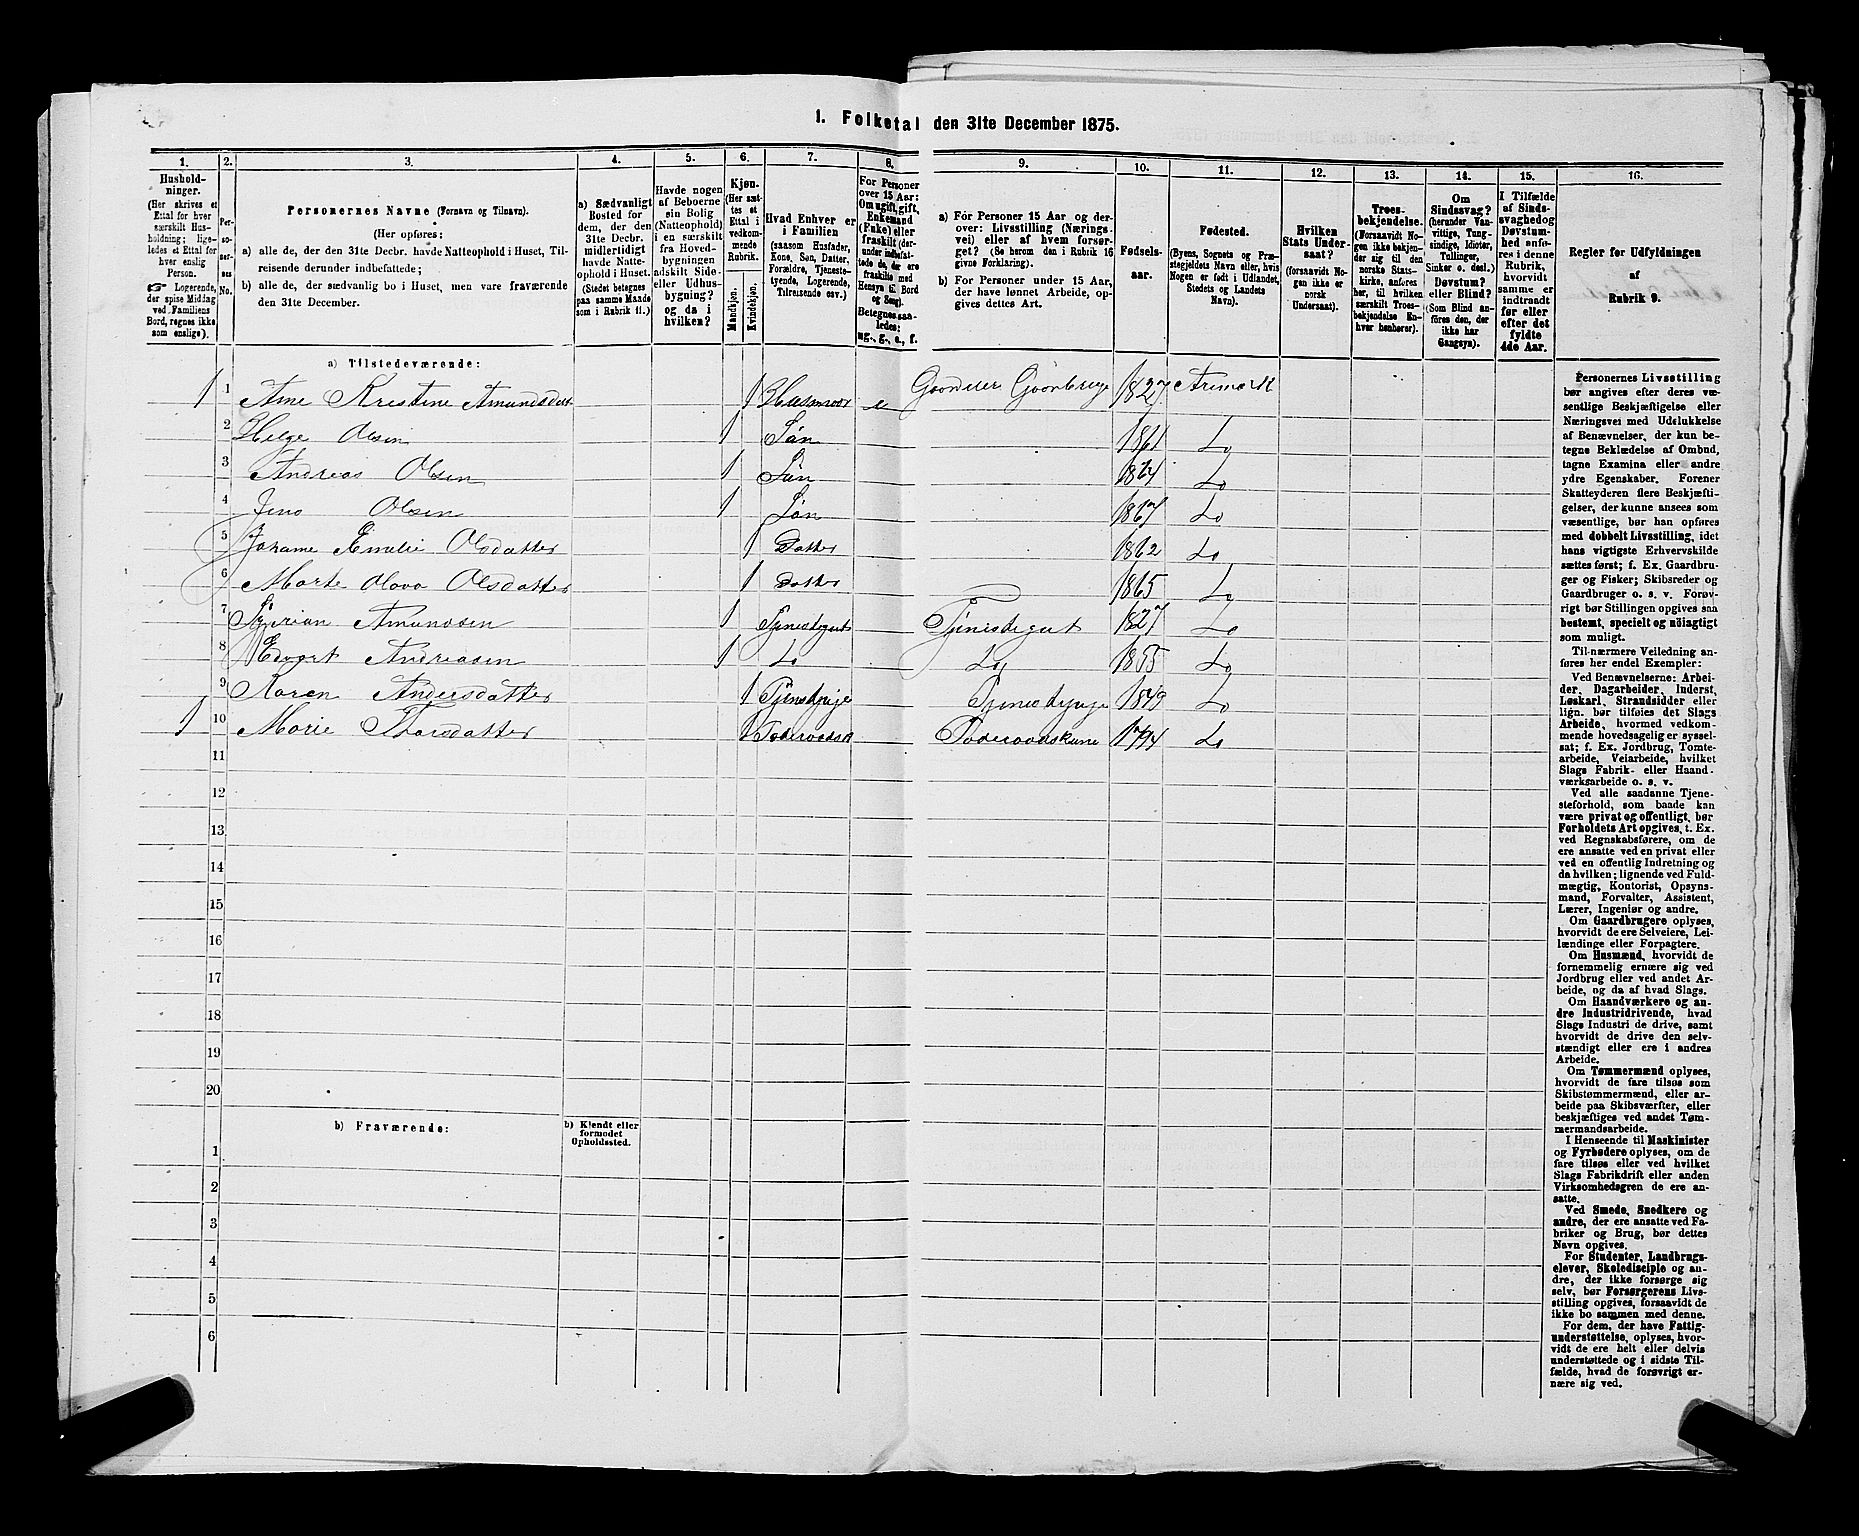 1. Folketal den 31te December 1875.
1. 2. 3. 4. 5. 6. 7. 8. 9. 10. 11. 12. 13. 14. 15. 16.
Hushold-
ninger.
(Her skrives et
Ettal for hver
særskilt Hus-
holdning; lige-
ledes et Ettal for
hver enslig
Person.
☞ Logerende,
der spise Middag
ved Familiens
Bord, regnes ikke
som enslige).
Per-
so-
ner-
nes
No.
Personernes Navne (Fornavn og Tilnavn).
(Her opføres:
a) alle de, der den 31te Decbr. havde Natteophold i Huset, Til-
reisende derunder indbefattede;
b) alle de, der sædvanlig bo i Huset, men vare fraværende
den 31te December.
a) Sædvanligt
Bosted for
dem, der den
31te Decbr.
midlertidigt
havde Natte-
ophold i Huset.
(Stedet betegnes
paa samme Maade
som i Rubrik 11.)
Havde nogen
af Beboerne
sin Bolig
(Natteophold)
i en særskilt
fra Hoved-
bygningen
adskilt Side-
eller Udhus-
bygning?
og da i
hvilken?
Kjøn.
(Her sæt-
tes et
Ettal i
vedkom-
mende
Rubrik.
Mandkjøn.
Kvindekjøn.
Hvad Enhver er
i Familien
(saasom Husfader,
Kone, Søn, Datter,
Forældre, Tjeneste-
tyende, Logerende,
Tilreisende osv.)
For Personer
over 15 Aar:
Om ugift, gift,
Enkemand
(Enke) eller
fraskilt (der-
under indbefat-
tede de, der ere
fraskilte med
Hensyn til Bord
og Seng).
Betegnes saa-
ledes:
ug., g., e., f.
a) For Personer 15 Aar og der-
over: Livsstilling (Nærings-
vei) eller af hvem forsør-
get? (Se herom den i Rubrik 16
givne Forklaring).
b) For Personer under 15 Aar,
der have lønnet Arbeide, op-
gives dettes Art.
Fødsels-
aar.
Fødested.
(Byens, Sognets og Præ-
stegjeldets Navn eller, hvis
Nogen er født i Udlandet,
Stedets og Landets
Navn).
Hvilken
Stats Under-
saat?
(forsaavidt No-
gen ikke er
norsk
Undersaat).
Troes-
bekjendelse.
(Forsaavidt No-
gen ikke bekjen-
der sig til den
norske Stats-
kirke, anføres
her, til hvilken
særskilt Troes-
bekjendelse En-
hver henhører).
Om
Sindssvag?
(herunder Van-
vittige, Tung-
sindige, Idioter,
Tullinger,
Sinker o. desl.)
Døvstum?
eller Blind?
(Som Blind an-
føres den, der
ikke har
Gangsyn).
I Tilfælde
af Sinds-
svaghed og
Døvstum-
hed anfø-
res i denne
Rubrik,
hvorvidt
samme er
indtraadt
før eller
efter det
fyldte
4de Aar.
Regler for Udfyldningen
af
Rubrik 9.
a) Tilstedeværende:
1 1 Ane Kristine Amundsdat 1 Husmoor e Gaardeier Gaardbruge 1827 Aremark
2 Helge Olsen 1 Søn 1861 Do
3 Andreas Olsen 1 Søn 1864 Do
4 Jens Olsen 1 Søn 1867 Do
5 Johanne Emelie Olsdatter 1 Datter 1862 Do
6 Marte Olava Olsdatter 1 Datter 1865 Do
7 Syverian Amundsen 1 Tjenistegut Tjenistegut 1827 Do
8 Edvart Andreasen 1 Do Do 1855 Do
9 Karen Andersdatter 1 Tjenstpige Tjenestpige 1849 Do
1 10 Marie Thorsdatter 1 Foderaadsk Foderaadskune 1794 Do
11
12
13
14
15
16
17
18
19
20
b) Fraværende:
b) Kjendt eller
formodet
Opholdssted.
1
2
3
4
5
6
Personernes Livsstilling
bør angives efter deres væ-
sentlige Beskjæftigelse eller
Næringsvei med Udelukkelse
af Benævnelser, der kun be-
tegne Beklædelse af Ombud,
tagne Examina eller andre
ydre Egenskaber. Forener
Skatteyderen flere Beskjæfti-
gelser, der kunne ansees som
væsentlige, bør han opføres
med dobbelt Livsstilling, idet
hans vigtigste Erhvervskilde
sættes først; f. Ex. Gaardbru-
ger og Fisker; Skibsreder og
Gaardbruger o. s. v. Forøv-
rigt bør Stillingen opgives saa
bestemt, specielt og nøiagtigt
som muligt.
Til nærmere Veiledning an-
føres her endel Exempler:
Ved Benævnelserne: Arbei-
der, Dagarbeider, Inderst,
Løskarl, Strandsidder eller
lign. bør tilføies det Slags
Arbeide, hvormed vedkom-
mende hovedsagelig er syssel-
sat; f. Ex. Jordbrug, Tomte-
arbeide, Veiarbeide, hvilket
Slags Fabrik- eller Haand-
værksarbeide o. s. v.
Ved alle saadanne Tjene-
steforhold, som baade kan
være privat og offentligt, bør
Forholdets Art opgives, t. Ex.
ved Regnskabsførere, om de
ere ansatte ved en privat eller
ved en offentlig Indretning og
da hvilken; lignende ved Fuld-
mægtig, Kontorist, Opsyns-
mand, Forvalter, Assistent,
Lærer, Ingeniør og andre.
Om Gaardbrugere oplyses,
hvorvidt de ere Selveiere, Lei-
lændinge eller Forpagtere.
Om Husmænd, hvorvidt de
fornemmelig ernære sig ved
Jordbrug eller ved andet Ar-
beide, og da af hvad Slags.
Om Haandværkere og an-
dre Industridrivende, hvad
Slags Industri de drive, samt
hvorvidt de drive den selv-
stændigt eller ere i andres
Arbeide.
Om Tømmermænd oplyses,
hvorvidt de fare tilsøs som
Skibstømmermænd, eller ar-
beide paa Skibsværfter, eller
beskjæftiges ved andet Tøm-
mermandsarbeide.
I Henseende til Maskinister
og Fyrbødere oplyses, om de
fare tilsøs eller ved hvilket
Slags Fabrikdrift eller anden
Virksomhedsgren de ere an-
satte.
Ved Smede, Snedkere og
andre, der ere ansatte ved Fa-
briker og Brug, bør dettes
Navn opgives.
For Studenter, Landbrugs-
elever, Skoledisciple og an-
dre, der ikke forsørge sig
selv, bør Forsørgerens Livs-
stilling opgives, forsaavidt de
ikke bo sammen med denne.
For dem, der have Fattig-
understøttelse, oplyses, hvor-
vidt de ere helt eller delvis
understøttede og i sidste Til-
fælde, hvad de forøvrigt er-
nære sig ved.